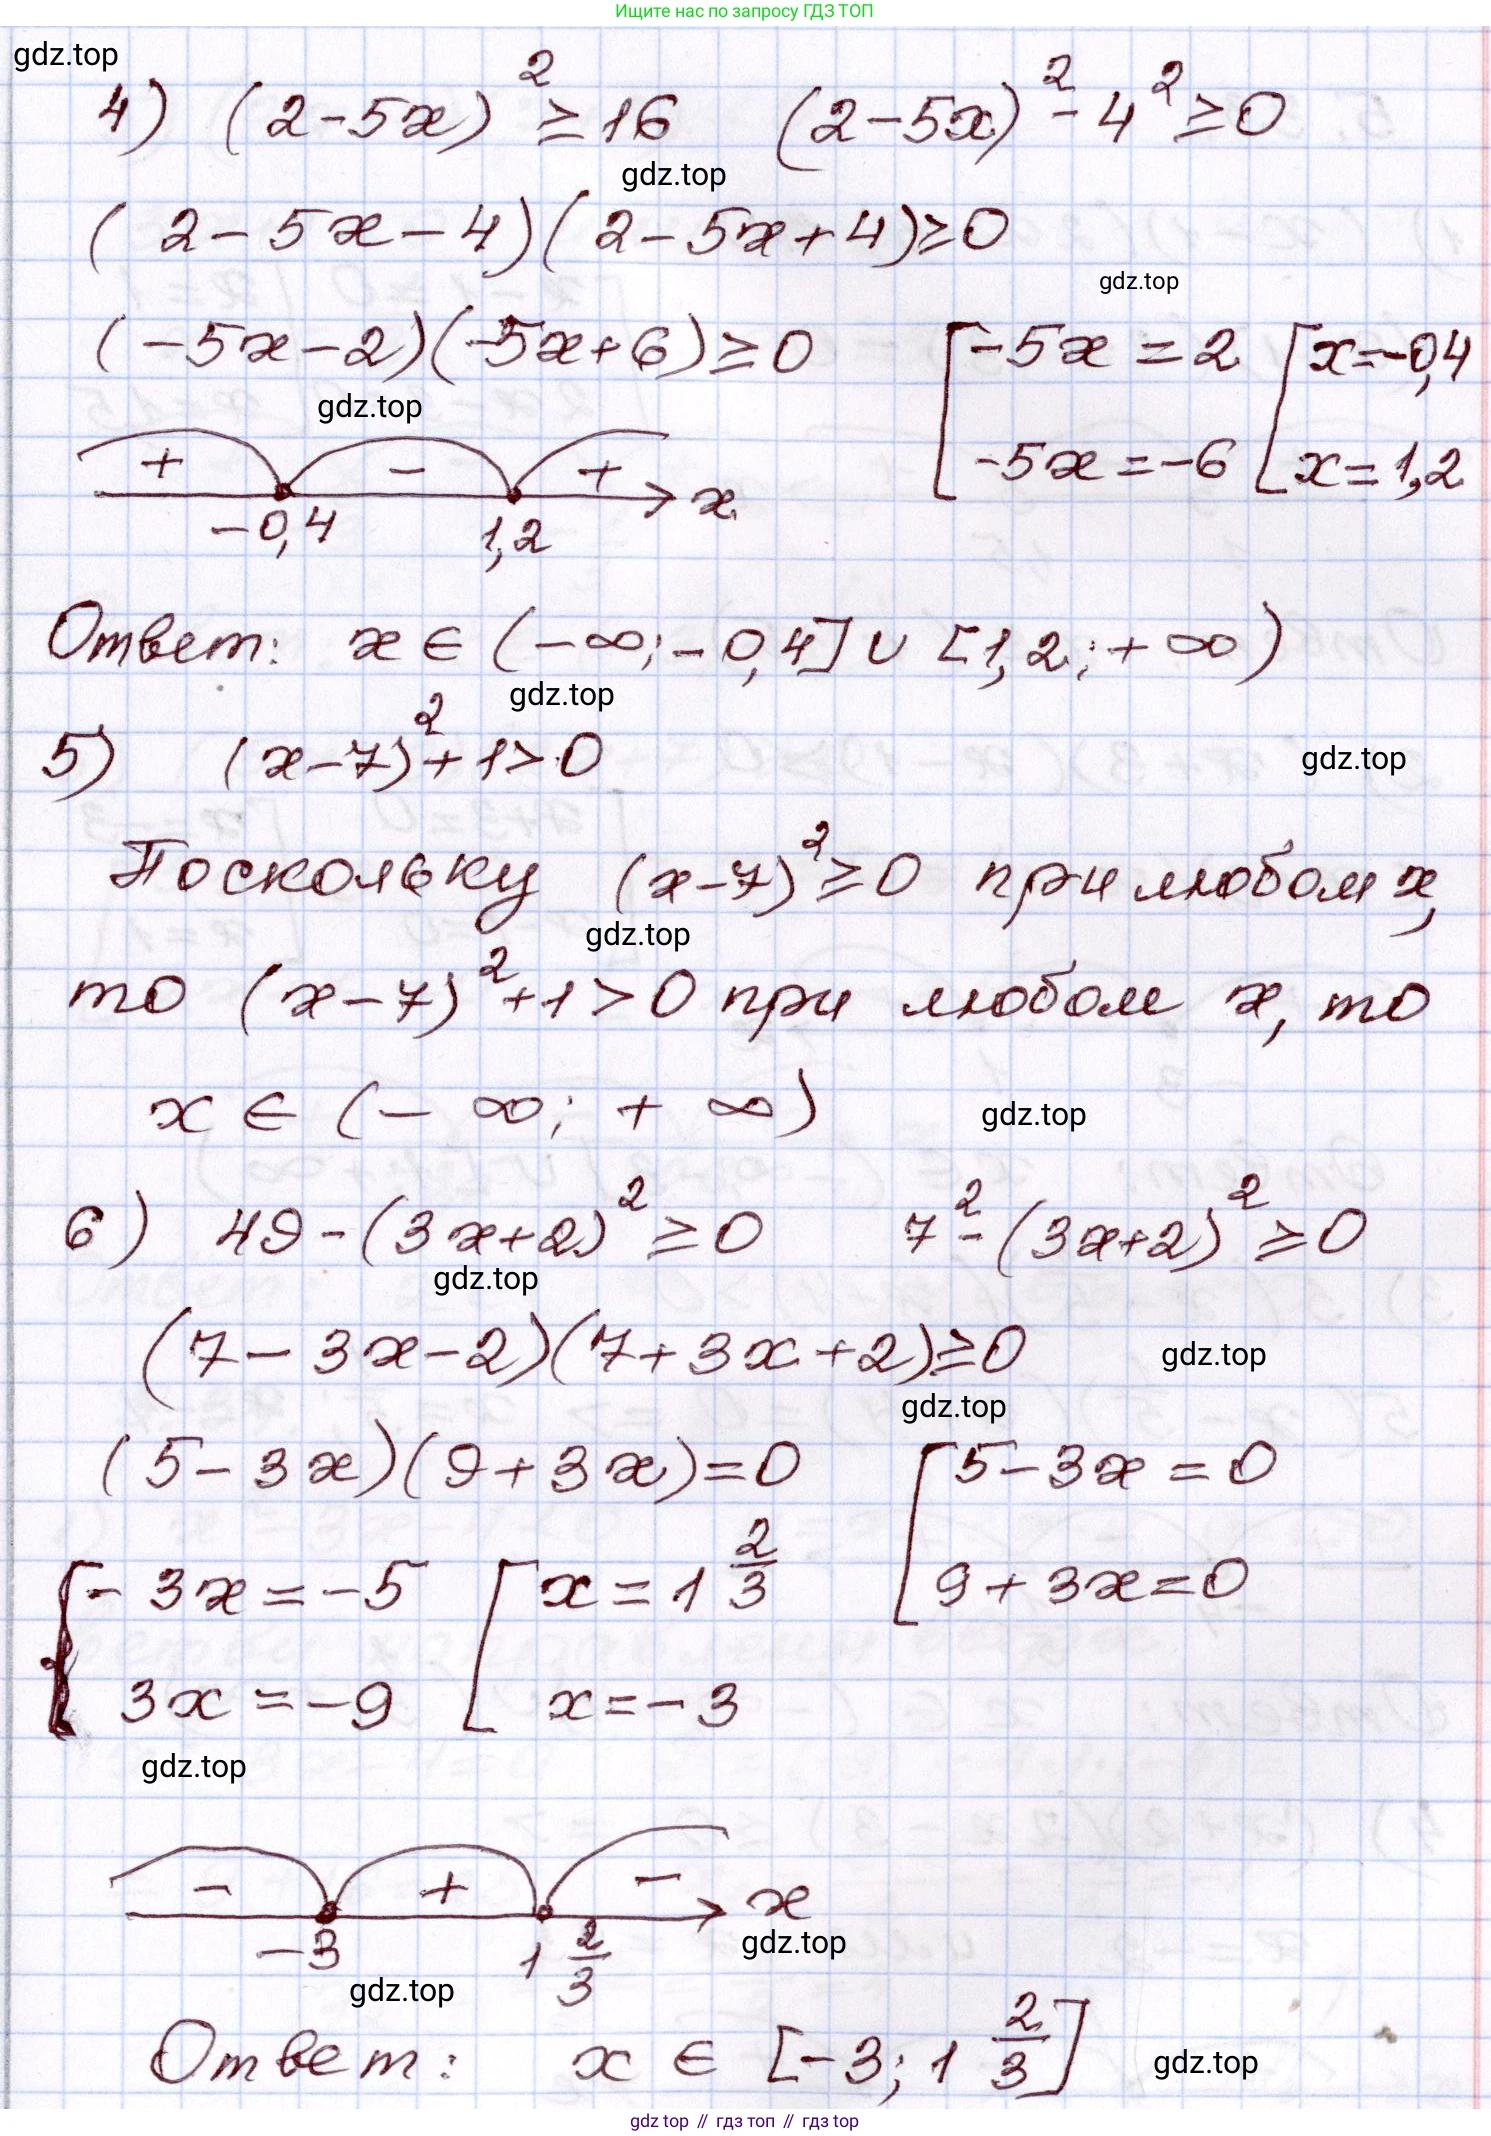 Ищите нас по запросу ГДЗ ТОП
gdz.top
4) (2-5x)² ≥ 16 (2-5x)² - 4² ≥ 0
gdz.top
(2-5x-4)(2-5x+4) ≥ 0
gdz.top
(-5x-2)(-5x+6) ≥ 0 [-5x = 2 [x = -0,4
gdz.top
+ - + -5x = -6 x = 1,2
x
-0,4 1,2
Ответ: x ∈ (-∞; -0,4] ∪ [1,2; +∞)
gdz.top
5) (x-7)² + 1 > 0
gdz.top
Поскольку (x-7)² ≥ 0 при любом x,
gdz.top
то (x-7)² + 1 > 0 при любом x, то
x ∈ (-∞; +∞)
gdz.top
6) 49 - (3x+2)² ≥ 0 7² - (3x+2)² ≥ 0
gdz.top
(7-3x-2)(7+3x+2) ≥ 0
gdz.top
gdz.top
(5-3x)(9+3x) = 0 [5-3x = 0
[-3x = -5 [x = 1 2/3 9+3x = 0
3x = -9 x = -3
gdz.top
- + -
x
-3 1 2/3
gdz.top
gdz.top
Ответ: x ∈ [-3; 1 2/3]
gdz.top
gdz top // гдз топ // gdz top